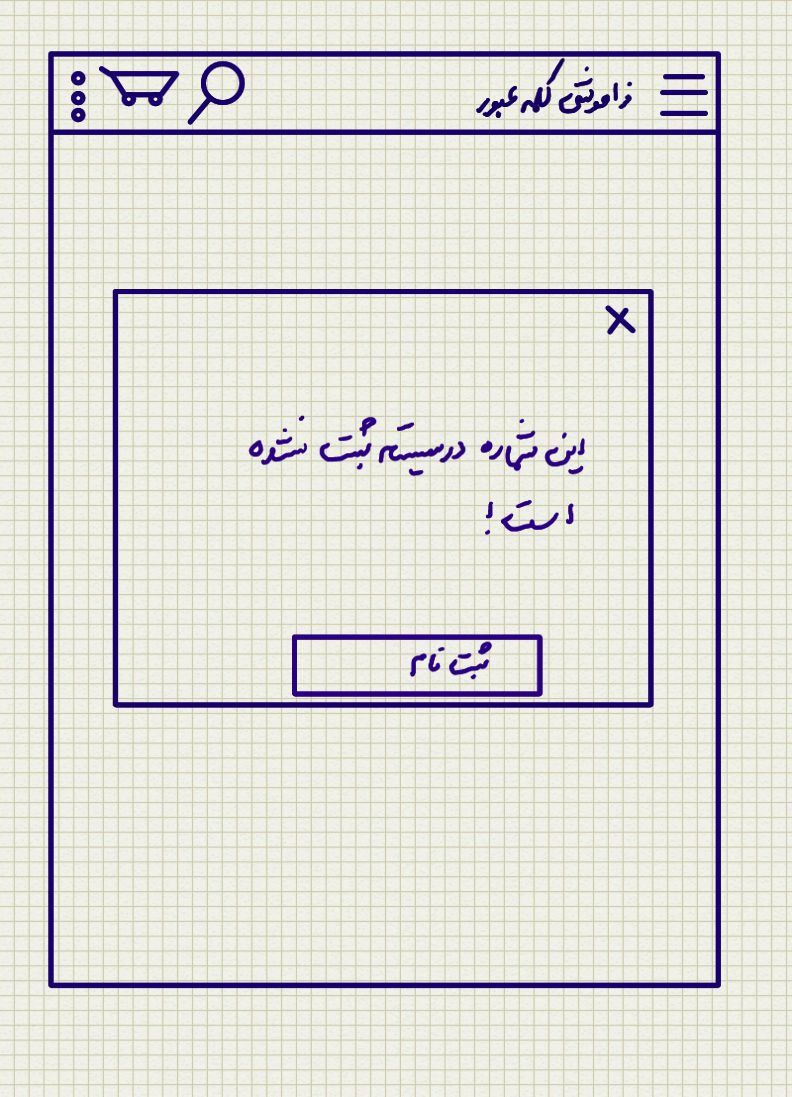 فراموشی کلمه عبور
این شماره در سیستم ثبت نشده
است!
ثبت نام